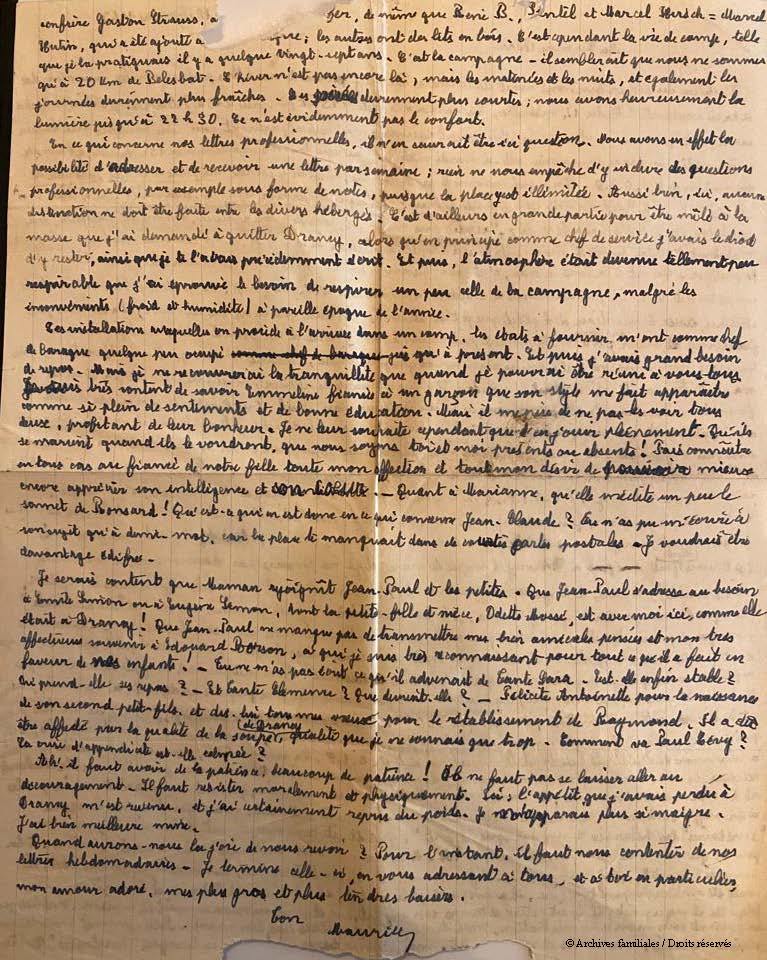 confrère Gaston Strauss, a fer, de même que René B., et Marcel Hirsch = Marcel
Hutin, qui a été ajouté a que ; les autres ont des lits en bois. C'est cependant la vie de camp, telle
que je la pratiquais il y a quelque vingt-sept ans. C'est la campagne - il semblerait que nous ne sommes
qu'à 20 km de Belesbat. L'hiver n'est pas encore là, mais les matinées et les nuits, et également les
journées deviennent plus fraîches. Les deviennent plus courtes ; nous avons heureusement la
lumière jusqu'à 22 h 30. Ce n'est évidemment pas le confort.
En ce qui concerne nos lettres professionnelles, il n'en saurait être ici question. Nous avons en effet la
possibilité d'adresser et de recevoir une lettre par semaine ; rien ne nous empêche d'y inclure des questions
professionnelles, par exemple sous forme de notes, puisque la place y est illimitée. Aussi bien, ici, aucune
distinction ne doit être faite entre les divers hébergés. C'est d'ailleurs en grande partie pour être mêlé à la
masse que j'ai demandé à quitter Drancy, alors qu'en principe comme chef de service j'avais le droit
d'y rester, ainsi que je te l'avais précédemment écrit. Et puis, l'atmosphère était devenue tellement peu
respirable que j'ai éprouvé le besoin de respirer un peu celle de la campagne, malgré les
inconvénients (froid et humidité) à pareille époque de l'année.
Les installations auxquelles on procède à l'arrivée dans un camp, les états à fournir m'ont comme chef
de baraque quelque peu occupé comme chef de baraque jusqu'à présent. Et puis j'avais grand besoin
de repos. Mais je ne recouvrerai la tranquillité que quand je pourrai être réuni à vous tous
Je suis très content de savoir Emmeline fiancée à un garçon que son style me fait apparaître
comme si plein de sentiments et de bonne éducation. Mais il me pèse de ne pas les voir tous
deux, profitant de leur bonheur. Je ne leur souhaite cependant que d'en jouir pleinement. Qu'ils
se marient quand ils le voudront, que nous soyons toi et moi présents ou absents ! Fais connaître
en tous cas au fiancé de notre fille toute mon affection et tout mon désir de pouvoir mieux
encore apprécier son intelligence et - Quant à Marianne, qu'elle médite un peu le
sonnet de Ronsard ! Qu'est-ce qui en est donc en ce qui concerne Jean-Claude ? Tu n'as pu m'écrire à
son sujet qu'à demi-mot, car la place te manquait dans de courtes cartes postales - Je voudrais être
davantage édifié.
Je serais content que Maman rejoignît Jean-Paul et les petites. Que Jean-Paul s'adresse au besoin
à Emile Simon ou à Eugène Simon, dont la petite-fille et nièce, Odette Mossé, est avec moi ici, comme elle
était à Drancy ! Que Jean-Paul ne manque pas de transmettre mes bien amicales pensées et mon très
affectueux souvenir à Edouard, à qui je suis très reconnaissant pour tout ce qu'il a fait en
faveur de nos enfants ! - Tu ne m'as pas écrit ce qu'il advenait de Tante Sara. Est-elle enfin stable ?
Où prend-elle ses repas ? - Et Tante Clémence ? Que devient-elle ? - Félicite Antoinette pour la naissance
de son second petit-fils, et dis-lui tous mes vœux pour le rétablissement de Raymond. Il a dû
être affecté par la qualité de la soupe (de Drancy), qualité que je ne connais que trop. Comment va Paul Lévy ?
Sa crise d'appendicite est-elle calmée ?
Ah ! il faut avoir de la patience, beaucoup de patience ! Il ne faut pas se laisser aller au
découragement. Il faut résister moralement et physiquement. Ici, l'appétit que j'avais perdu à
Drancy m'est revenu, et j'ai certainement repris du poids. Je n'apparais plus si maigre.
J'ai bien meilleure mine.
Quand aurons-nous la joie de nous revoir ? Pour l'instant, il faut nous contenter de nos
lettres hebdomadaires - Je termine celle-ci, en vous adressant à tous, et à toi en particulier,
mon amour adoré, mes plus gros et plus tendres baisers.
Ton
Maurice
© Archives familiales / Droits réservés